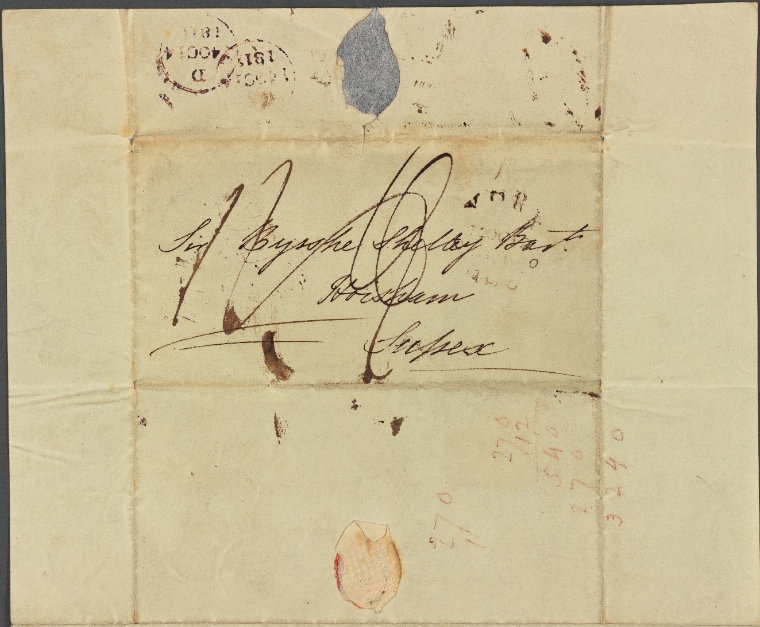 D
4 OC 4
181
181
YORK
Sir Bysshe Shelley Bart.
Horsham
Sussex
270
12
540
270
3240
270